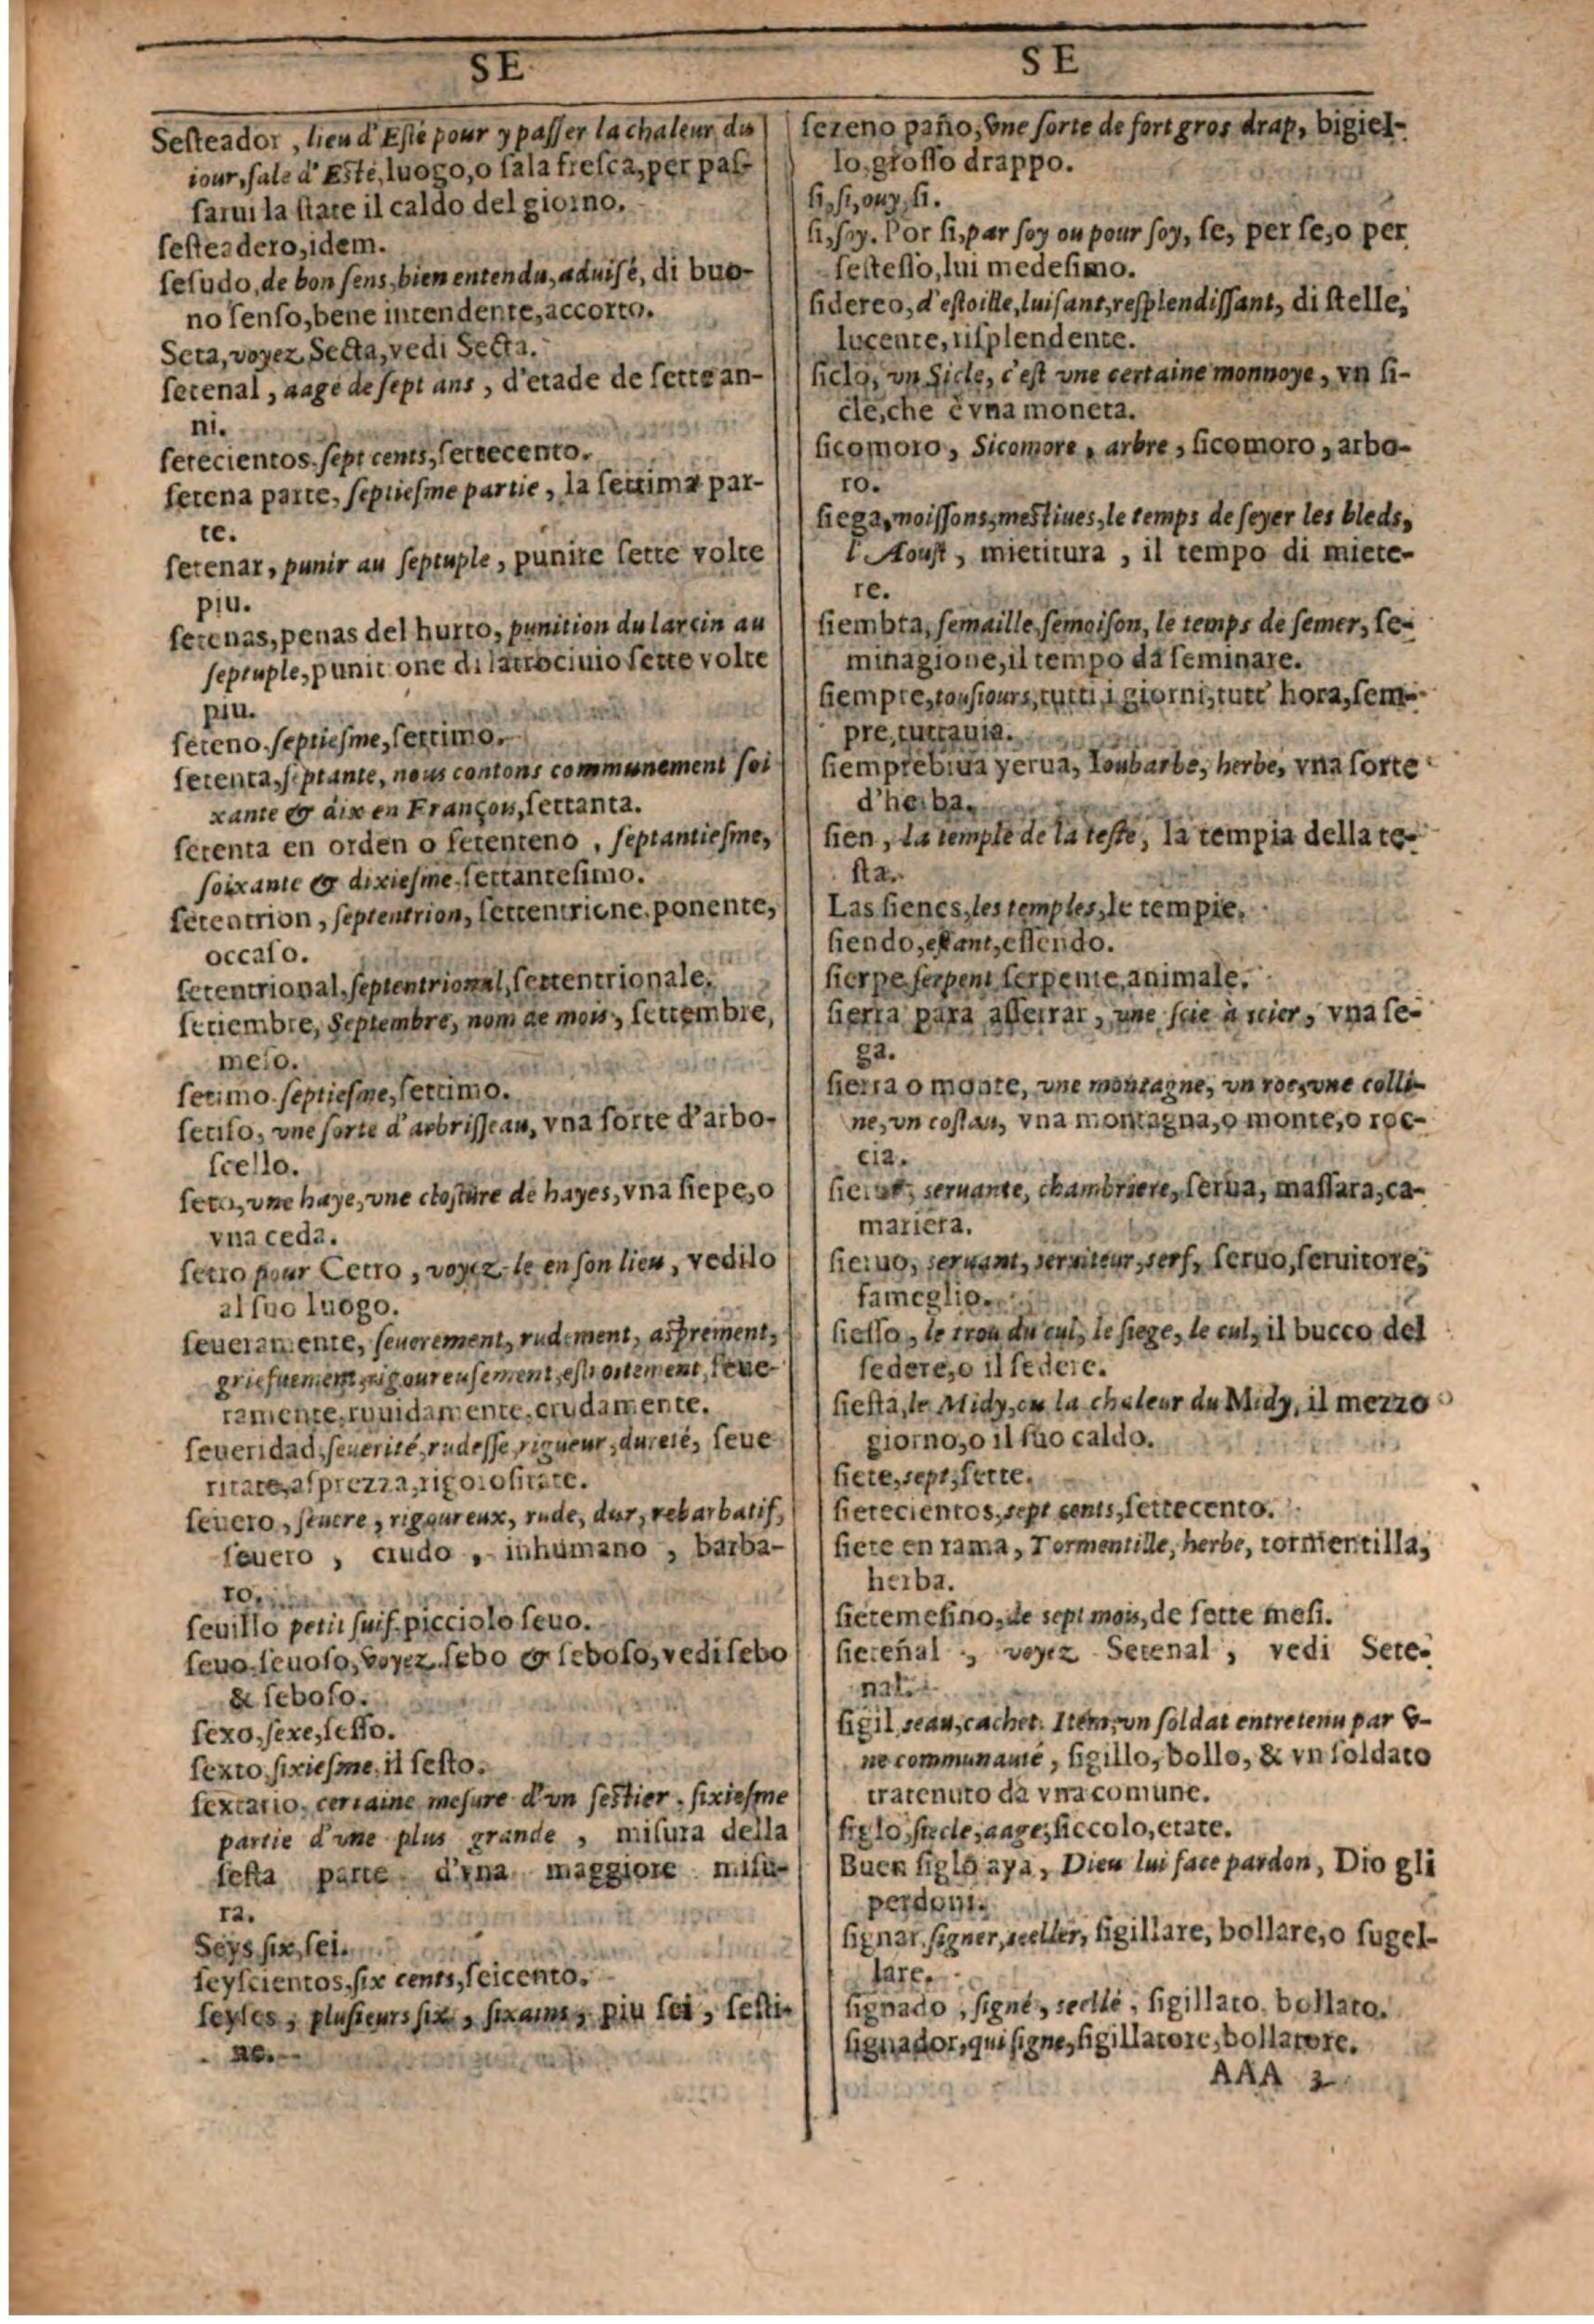 SE
Sesteador, lieu d'Esté pour y passer la chaleur du
iour, sale d'Esté, luogo, o sala fresca, per pas-
sarui la state il caldo del giorno.
sesteadero, idem.
sesudo, de bon sens, bien entendu, aduisé, di buo-
no senso, bene intendente, accorto.
Seta, voyez Secta, vedi Secta.
setenal, aage de sept ans, d'etade de sette an-
ni.
setecientos, sept cents, settecento.
setena parte, septiesme partie, la settima par-
te.
setenar, punir au septuple, punire sette volte
piu.
setenas, penas del hurto, punition du larcin au
septuple, punitione di latrociuio sette volte
piu.
seteno, septiesme, settimo.
setenta, septante, nous contons communement soi
xante & dix en François, settanta.
setenta en orden o setenteno, septantiesme,
soixante & dixiesme, settantesimo.
setentrion, septentrion, settentrione, ponente,
occaso.
setentrional, septentrional, settentrionale.
setiembre, Septembre, nom de mois, settembre,
mese.
setimo, septiesme, settimo.
setiso, vne sorte d'arbrisseau, vna sorte d'arbo-
scello.
seto, vne haye, vne closture de hayes, vna siepe, o
vna ceda.
setro pour Cetro, voyez-le en son lieu, vedilo
al suo luogo.
seueramente, seuerement, rudement, asprement,
griefuement, rigoureusement, estroitement, seue-
ramente, ruuidamente, crudamente.
seueridad, seuerité, rudesse, rigueur, dureté, seue
ritate, asprezza, rigorositate.
seuero, seuere, rigoureux, rude, dur, rebarbatif,
seuero, crudo, inhumano, barba-
ro.
seuillo petit suif, picciolo seuo.
seuo, seuoso, voyez sebo & seboso, vedi sebo
& seboso.
sexo, sexe, sesso.
sexto, sixiesme, il sesto.
sextario, certaine mesure d'vn sestier, sixiesme
partie d'vne plus grande, misura della
sesta parte d'vna maggiore misu-
ra.
Seys, six, sei.
seyscientos, six cents, seicento.
seyses, plusieurs six, sixains, piu sei, sesti-
ne.
SE
sezeno paño, vne sorte de fort gros drap, bigiel-
lo, grosso drappo.
si, si, ouy, si.
si, soy. Por si, par soy ou pour soy, se, per se, o per
sestesso, lui medesimo.
sidereo, d'estoille, luisant, resplendissant, di stelle,
lucente, risplendente.
siclo, vn Sicle, c'est vne certaine monnoye, vn si-
cle, che è vna moneta.
sicomoro, Sicomore, arbre, sicomoro, arbo-
ro.
siega, moissons, mestiues, le temps de seyer les bleds,
l'Aoust, mietitura, il tempo di miete-
re.
siembra, semaille, semoison, le temps de semer, se-
minagione, il tempo da seminare.
siempre, tousiours, tutti i giorni, tutt' hora, sem-
pre, tuttauia.
siemprebiua yerua, Ioubarbe, herbe, vna sorte
d'herba.
sien, la temple de la teste, la tempia della te-
sta.
Las sienes, les temples, le tempie.
siendo, estant, essendo.
sierpe, serpent, serpente, animale.
sierra para asserrar, vne scie à scier, vna se-
ga.
sierra o monte, vne montagne, vn roc, vne colli-
ne, vn costau, vna montagna, o monte, o roc-
cia.
sierua, seruante, chambriere, serua, massara, ca-
mariera.
sieruo, seruant, seruiteur, serf, seruo, seruitore,
fameglio.
siesso, le trou du cul, le siege, le cul, il bucco del
sedere, o il sedere.
siesta, le Midy, ou la chaleur du Midy, il mezzo
giorno, o il suo caldo.
siete, sept, sette.
sietecientos, sept cents, settecento.
siete en rama, Tormentille, herbe, tormentilla,
herba.
sietemesino, de sept mois, de sette mesi.
sieteñal, voyez Setenal, vedi Sete-
nal.
sigil, seau, cachet. Item, vn soldat entretenu par v-
ne communauté, sigillo, bollo, & vn soldato
tratenuto da vna comune.
siglo, siecle, aage, siccolo, etate.
Buen siglo aya, Dieu lui face pardon, Dio gli
perdoni.
signar, signer, seeller, sigillare, bollare, o sugel-
lare.
signado, signé, seellé, sigillato, bollato.
signador, qui signe, sigillatore, bollatore.
AAA 3